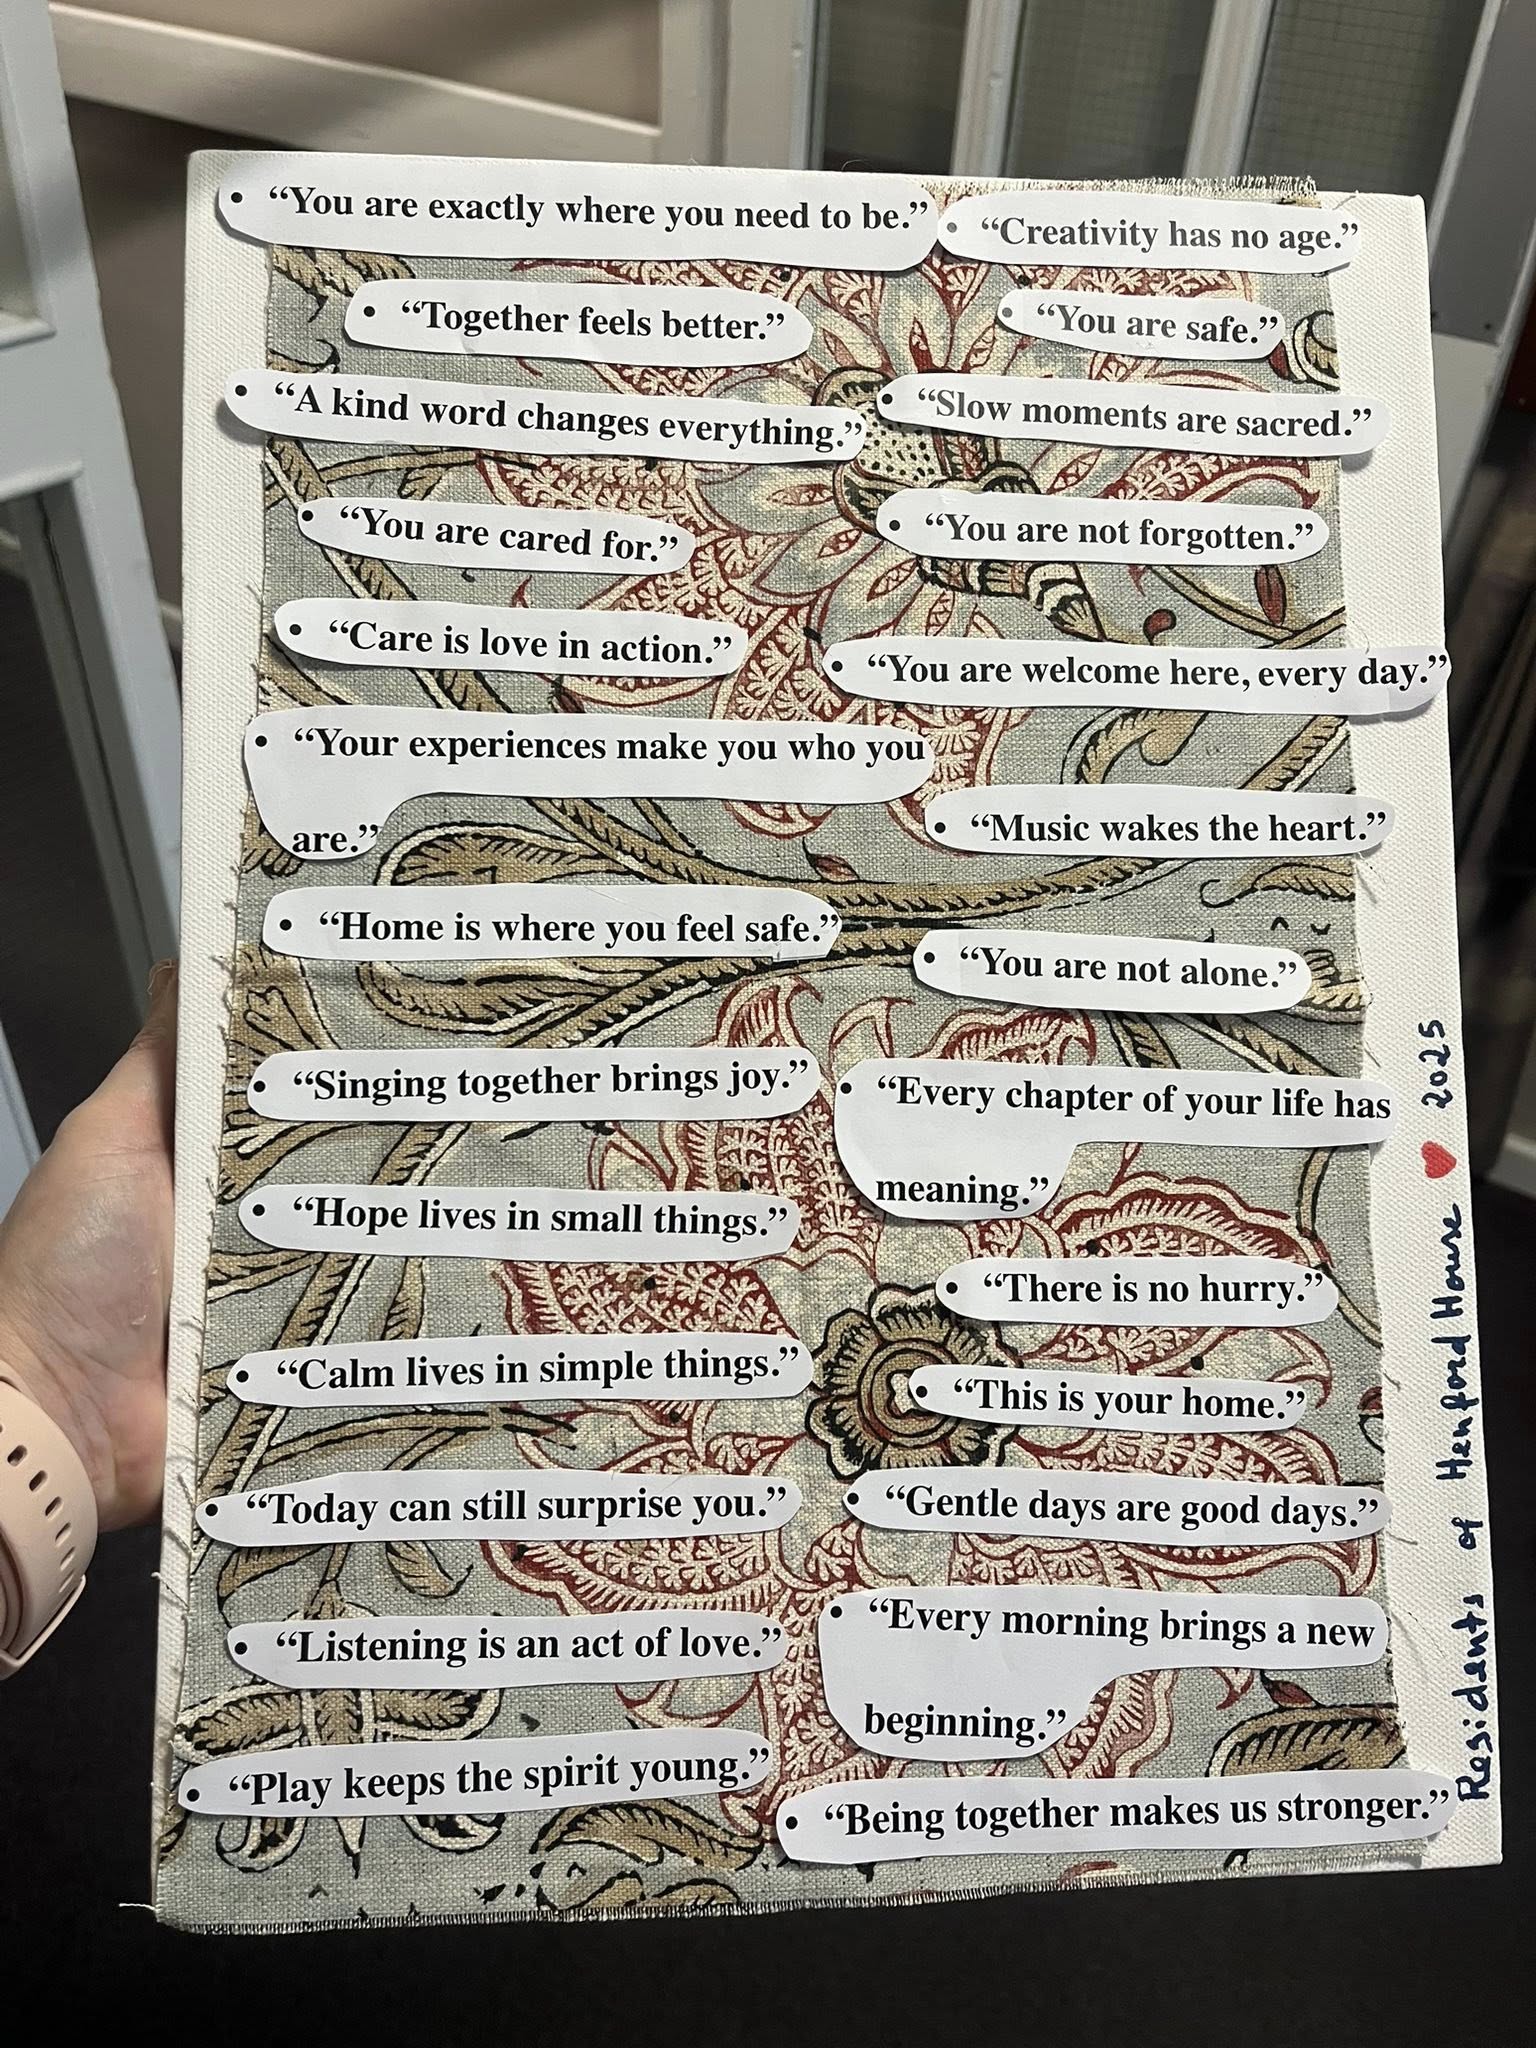 • “You are exactly where you need to be.”
• “Together feels better.”
• “A kind word changes everything.”
• “You are cared for.”
• “Care is love in action.”
• “Your experiences make you who you
are.”
• “Home is where you feel safe.”
• “Singing together brings joy.”
• “Hope lives in small things.”
• “Calm lives in simple things.”
• “Today can still surprise you.”
• “Listening is an act of love.”
• “Play keeps the spirit young.”
• “Creativity has no age.”
• “You are safe.”
• “Slow moments are sacred.”
• “You are not forgotten.”
• “You are welcome here, every day.”
• “Music wakes the heart.”
• “You are not alone.”
• “Every chapter of your life has
meaning.”
• “There is no hurry.”
• “This is your home.”
• “Gentle days are good days.”
• “Every morning brings a new
beginning.”
• “Being together makes us stronger.”
Residents of Henford House ♥ 2025